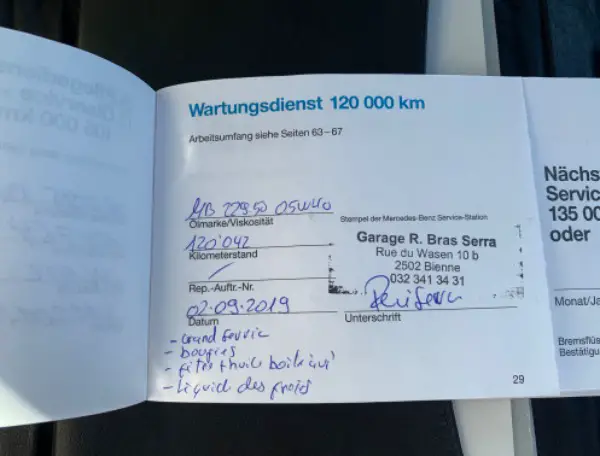 Wartungsdienst 120 000 km
Arbeitsumfang siehe Seiten 63–67
MB 229.50 05W40
Ölmarke/Viskosität
120'042
Kilometerstand
Rep.-Auftr.-Nr.
02.09.2019
Datum
- Grand Servic
- bougies
- filtes + huile boite
- Liquid des froids
Stempel der Mercedes-Benz Service-Station
Garage R. Bras Serra
Rue du Wasen 10 b
2502 Bienne
032 341 34 31
Unterschrift
29
Nächs
Servic
135 00
oder
Monat/Ja
Bremsflüs
Bestätigu